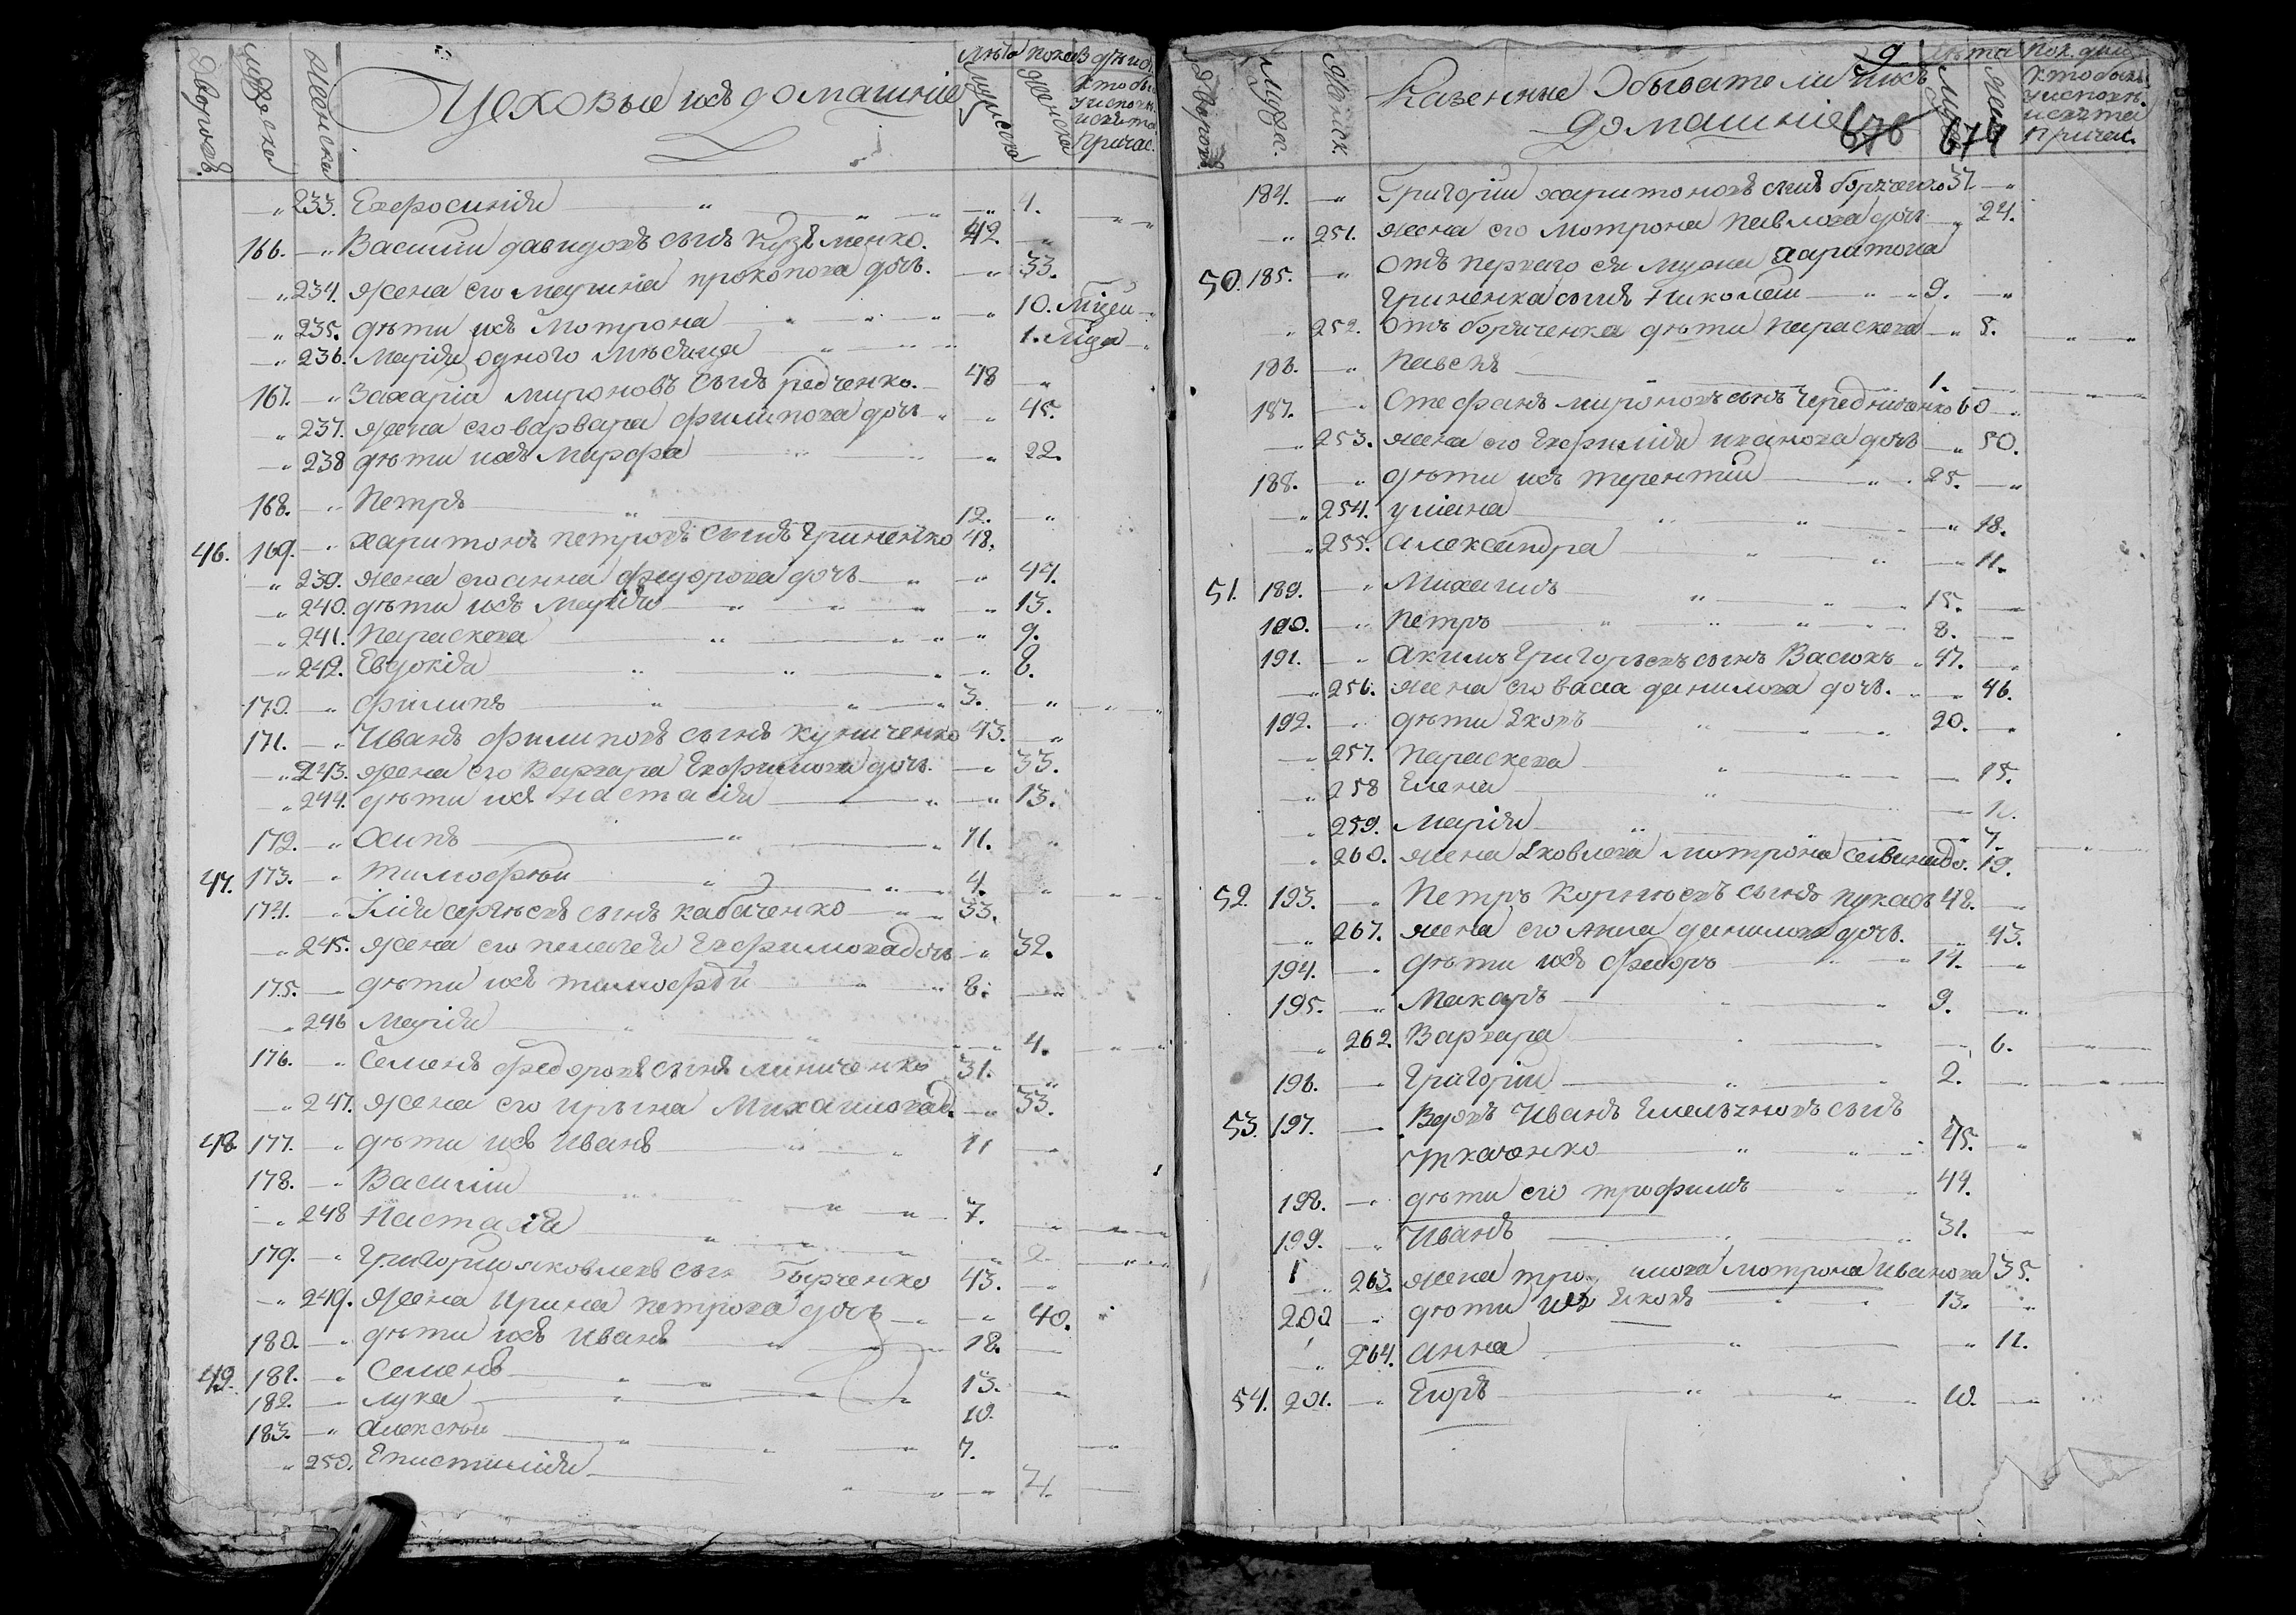 Дворовъ. мужеска женска Цеховые ихъ домашніе Лѣта мужеска женска Показ. дѣист. кто былъ у исповѣ. и св. та. Причас.
233. Евфросинія 4.
166. Василій давидовъ сынъ Кузменко. 42.
234. Жена его марина прокопова дочь. 33.
235. дѣти ихъ Мотрона 10.
236. Марія одного мѣсяца 1.
167. Захарія мироновъ сынъ редченко. 48
237. жена его варвара филипова дочь 45.
238 дѣти ихъ Марфа 22.
168. Петръ 12.
46. 169. харитонъ петровъ сынъ Гриненко 48.
239. жена его анна федорова дочь 44.
240. дѣти ихъ Марія 13.
241. Параскева 9.
242. Евдокія 8.
170. филипъ 3.
171. Иванъ филиповъ сынъ куниченко 43.
243. жена его Варвара Евфимова дочь 33.
244. дѣти ихъ настасія 13.
172. Осипъ 11.
47. 173. тимофѣи 4.
174. Ілія сергѣевъ сынъ кабаченко 33.
245. жена его пелагея Евфимова дочь 32.
175. дѣти ихъ тимофѣй 8.
246 Марія 4.
176. Семенъ федоровъ сынъ линиченко 31.
247. жена его ирына Михаилова д. 33.
48. 177. дѣти ихъ Иванъ 11
178. Василій 7.
248 Настасія 2
179. Григорій яковлевъ сынъ 43.
249. Жена Ирина петрова дочь 40.
180. дѣти ихъ Иванъ 18.
49. 181. Семенъ 13.
182. лука 10.
183. алексѣй 7.
250. Епистимія 4.
Дворовъ. Мужес. Женск. Казенные Обыватели и ихъ 9. Лѣта Пок. дѣи.
домашніе 676 674 кто былъ у исповѣ. и св. та Причас.
184. Григорій харитоновъ сынъ 37.
251. жена его мотрона павлова дочь 24.
50. 185. Отъ перваго ея мужа харитона
Гриненка сынъ Николай 9.
252. Отъ дѣти параскева 8.
186. Павелъ 1.
187. Стефанъ мироновъ сынъ Чередниченко 60
253. жена его Евфимія иванова дочь 50.
188. дѣти ихъ терентій 25.
254. уліана 18.
255. Александра 11.
51. 189. Михаилъ 15.
190. Петръ 8.
191. Акимъ Григорьевъ сынъ Васюкъ 47.
256. жена его васа данилова дочь. 46.
192. дѣти Яковъ 20.
257. Параскева 15.
258 Елена
259. Марія 7.
260. жена Яковлева мотрона 19.
52. 193. Петръ Корнѣевъ сынъ 48.
261. жена его анна данилова дочь. 43.
194. дѣти ихъ федоръ 14.
195. Макаръ 9.
262. Варвара 6.
196. Григорій 2.
53. 197. Вдовъ Иванъ Емельяновъ сынъ
ткаченко 75.
198. дѣти его трофимъ 44.
199. Иванъ 31.
263. жена мотрона Иванова 35.
200 дѣти ихъ Яковъ 13.
264. анна 11.
54. 201. Егоръ 10.